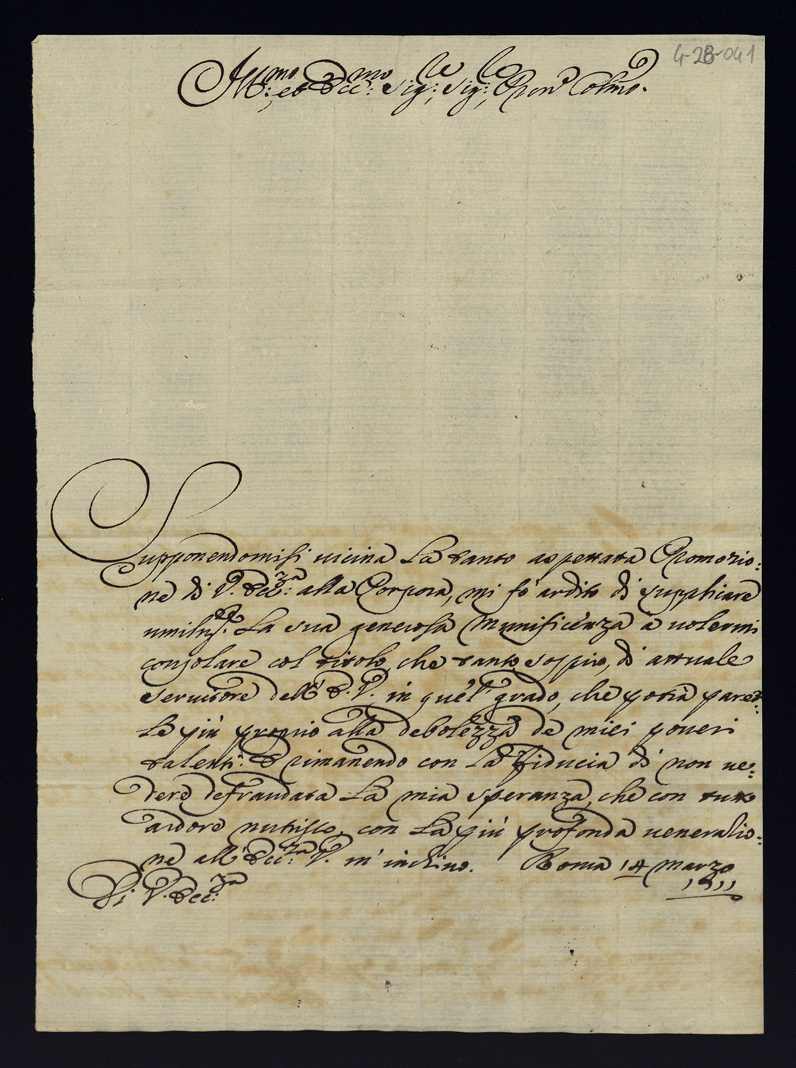 4-28-041
Ill:mo, et Ecc:mo Sig:re Sig:re Pron Colmo
Supponendomisi vicina la tanto aspettata Promozio:
ne di V. Ecc:za alla Porpora, mi fò ardito di supplicare
umilm:te La sua generosa Munificenza à volermi
consolare col titolo, che tanto sospiro, di attuale
servitore dell' E. V. in quel grado, che potrà parer:
Le più proprio alla debolezza de miei poveri
talenti. E rimanendo con La fiducia di non ve:
dere defraudata La mia speranza, che con tutto
ardore nutrisco, con La più profonda venerazio:
ne all' Ecc:za V. m' inchino. Roma 14 marzo
Di V. Ecc:za